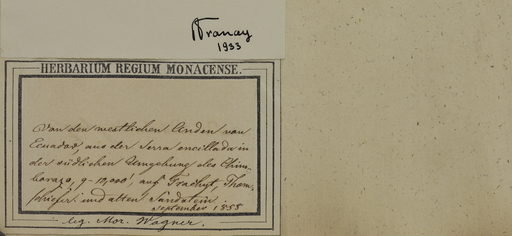 Tranay
1933
HERBARIUM REGIUM MONACENSE.
Von den westlichen Anden von
Ecuador, aus der Serra encillada in
der südlichen Umgebung des Chim-
borazo, 9-10,000', auf Trachyt, Thon-
schiefer und alten Sandstein
September 1858
leg. Mor. Wagner.